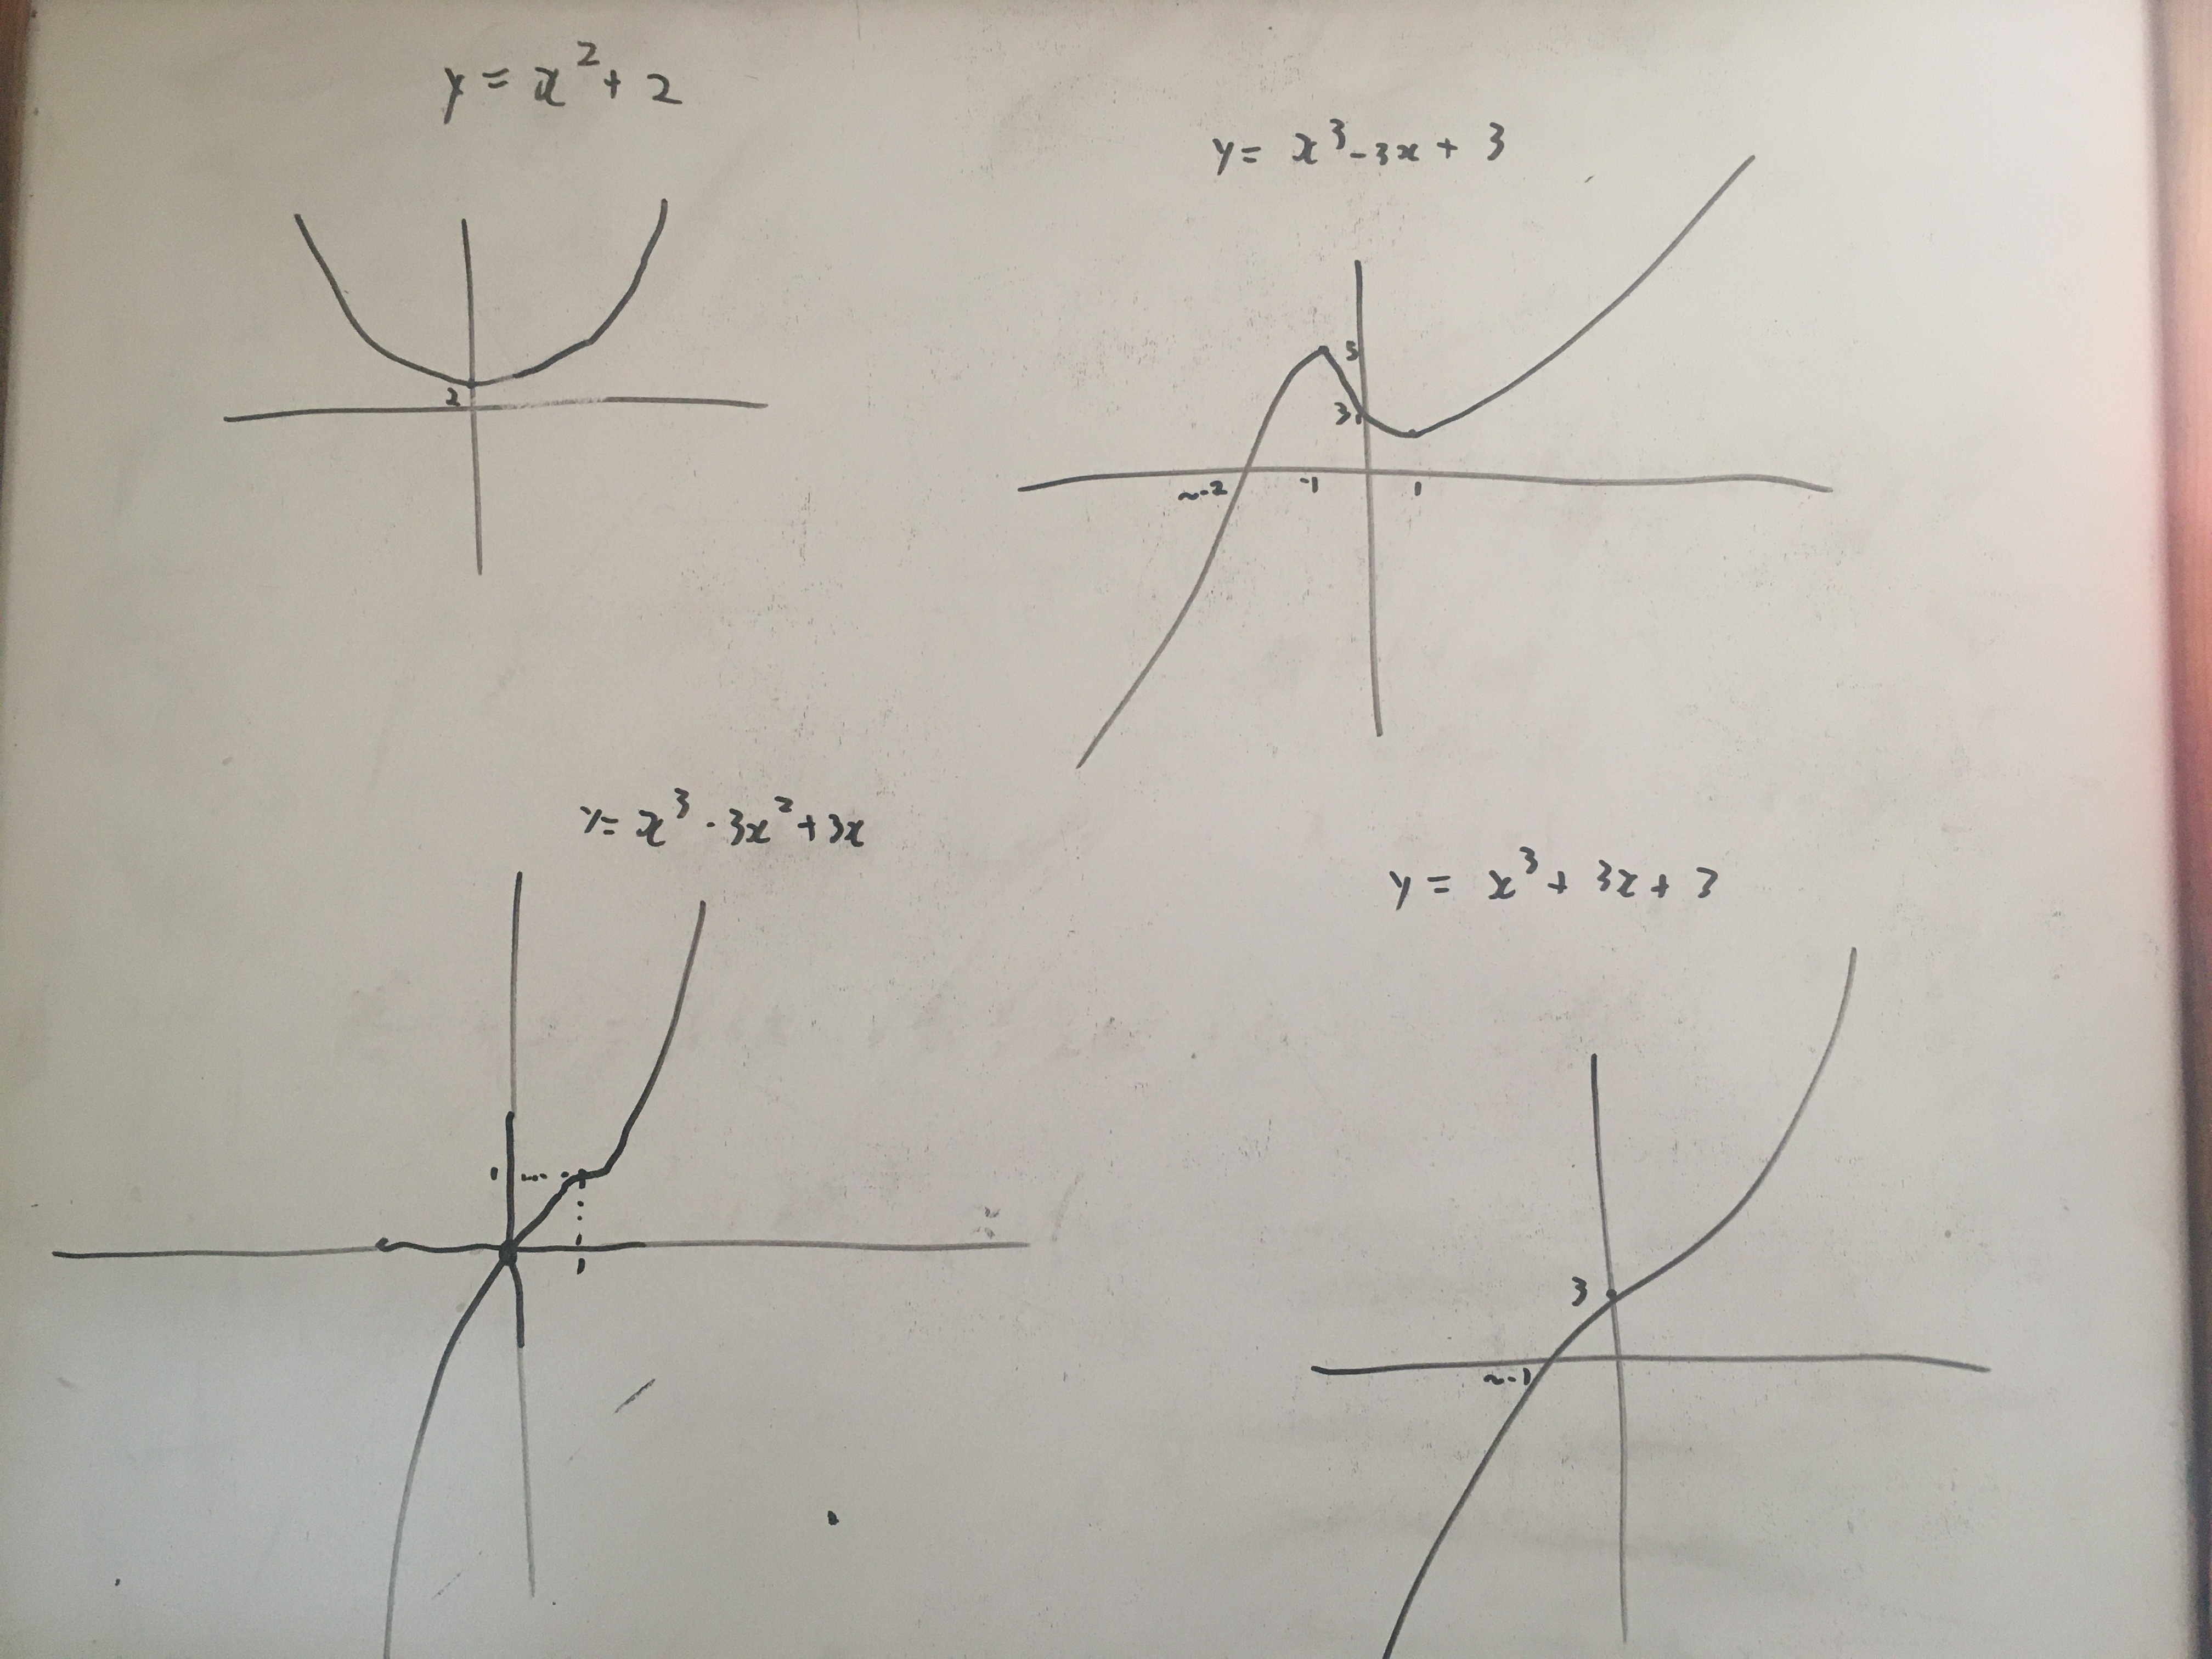 y = x² + 2
2
y = x³ - 3x + 3
5
3
~-2 -1 1
y = x³ - 3x² + 3x
1
1
y = x³ + 3x + 3
3
~-1